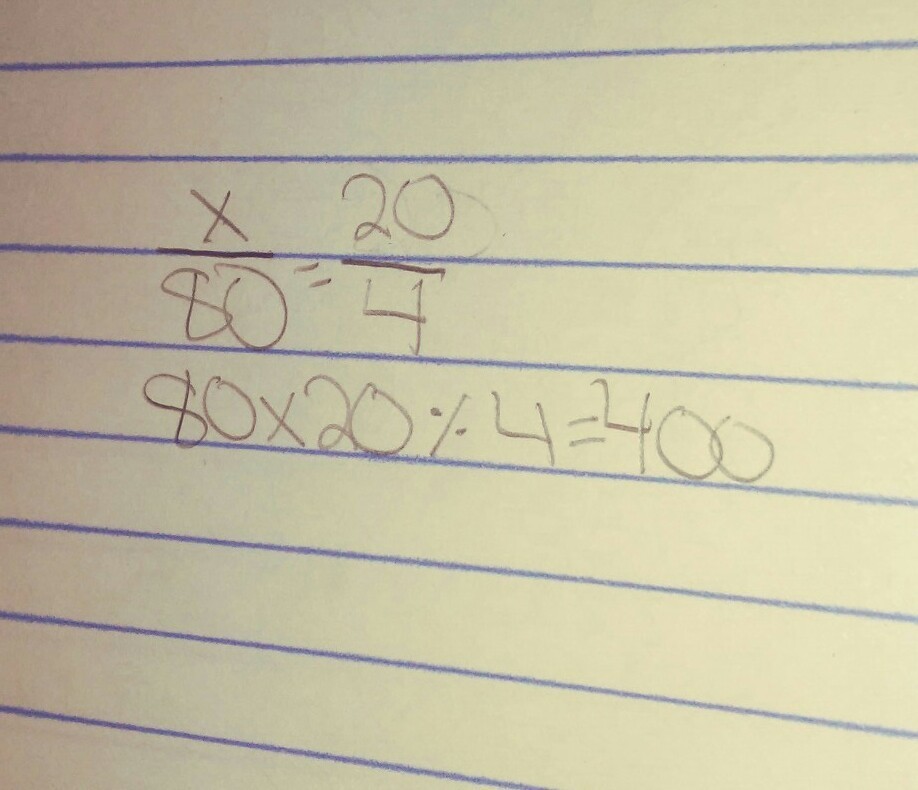 x/80 = 20/4
80x20÷4=400